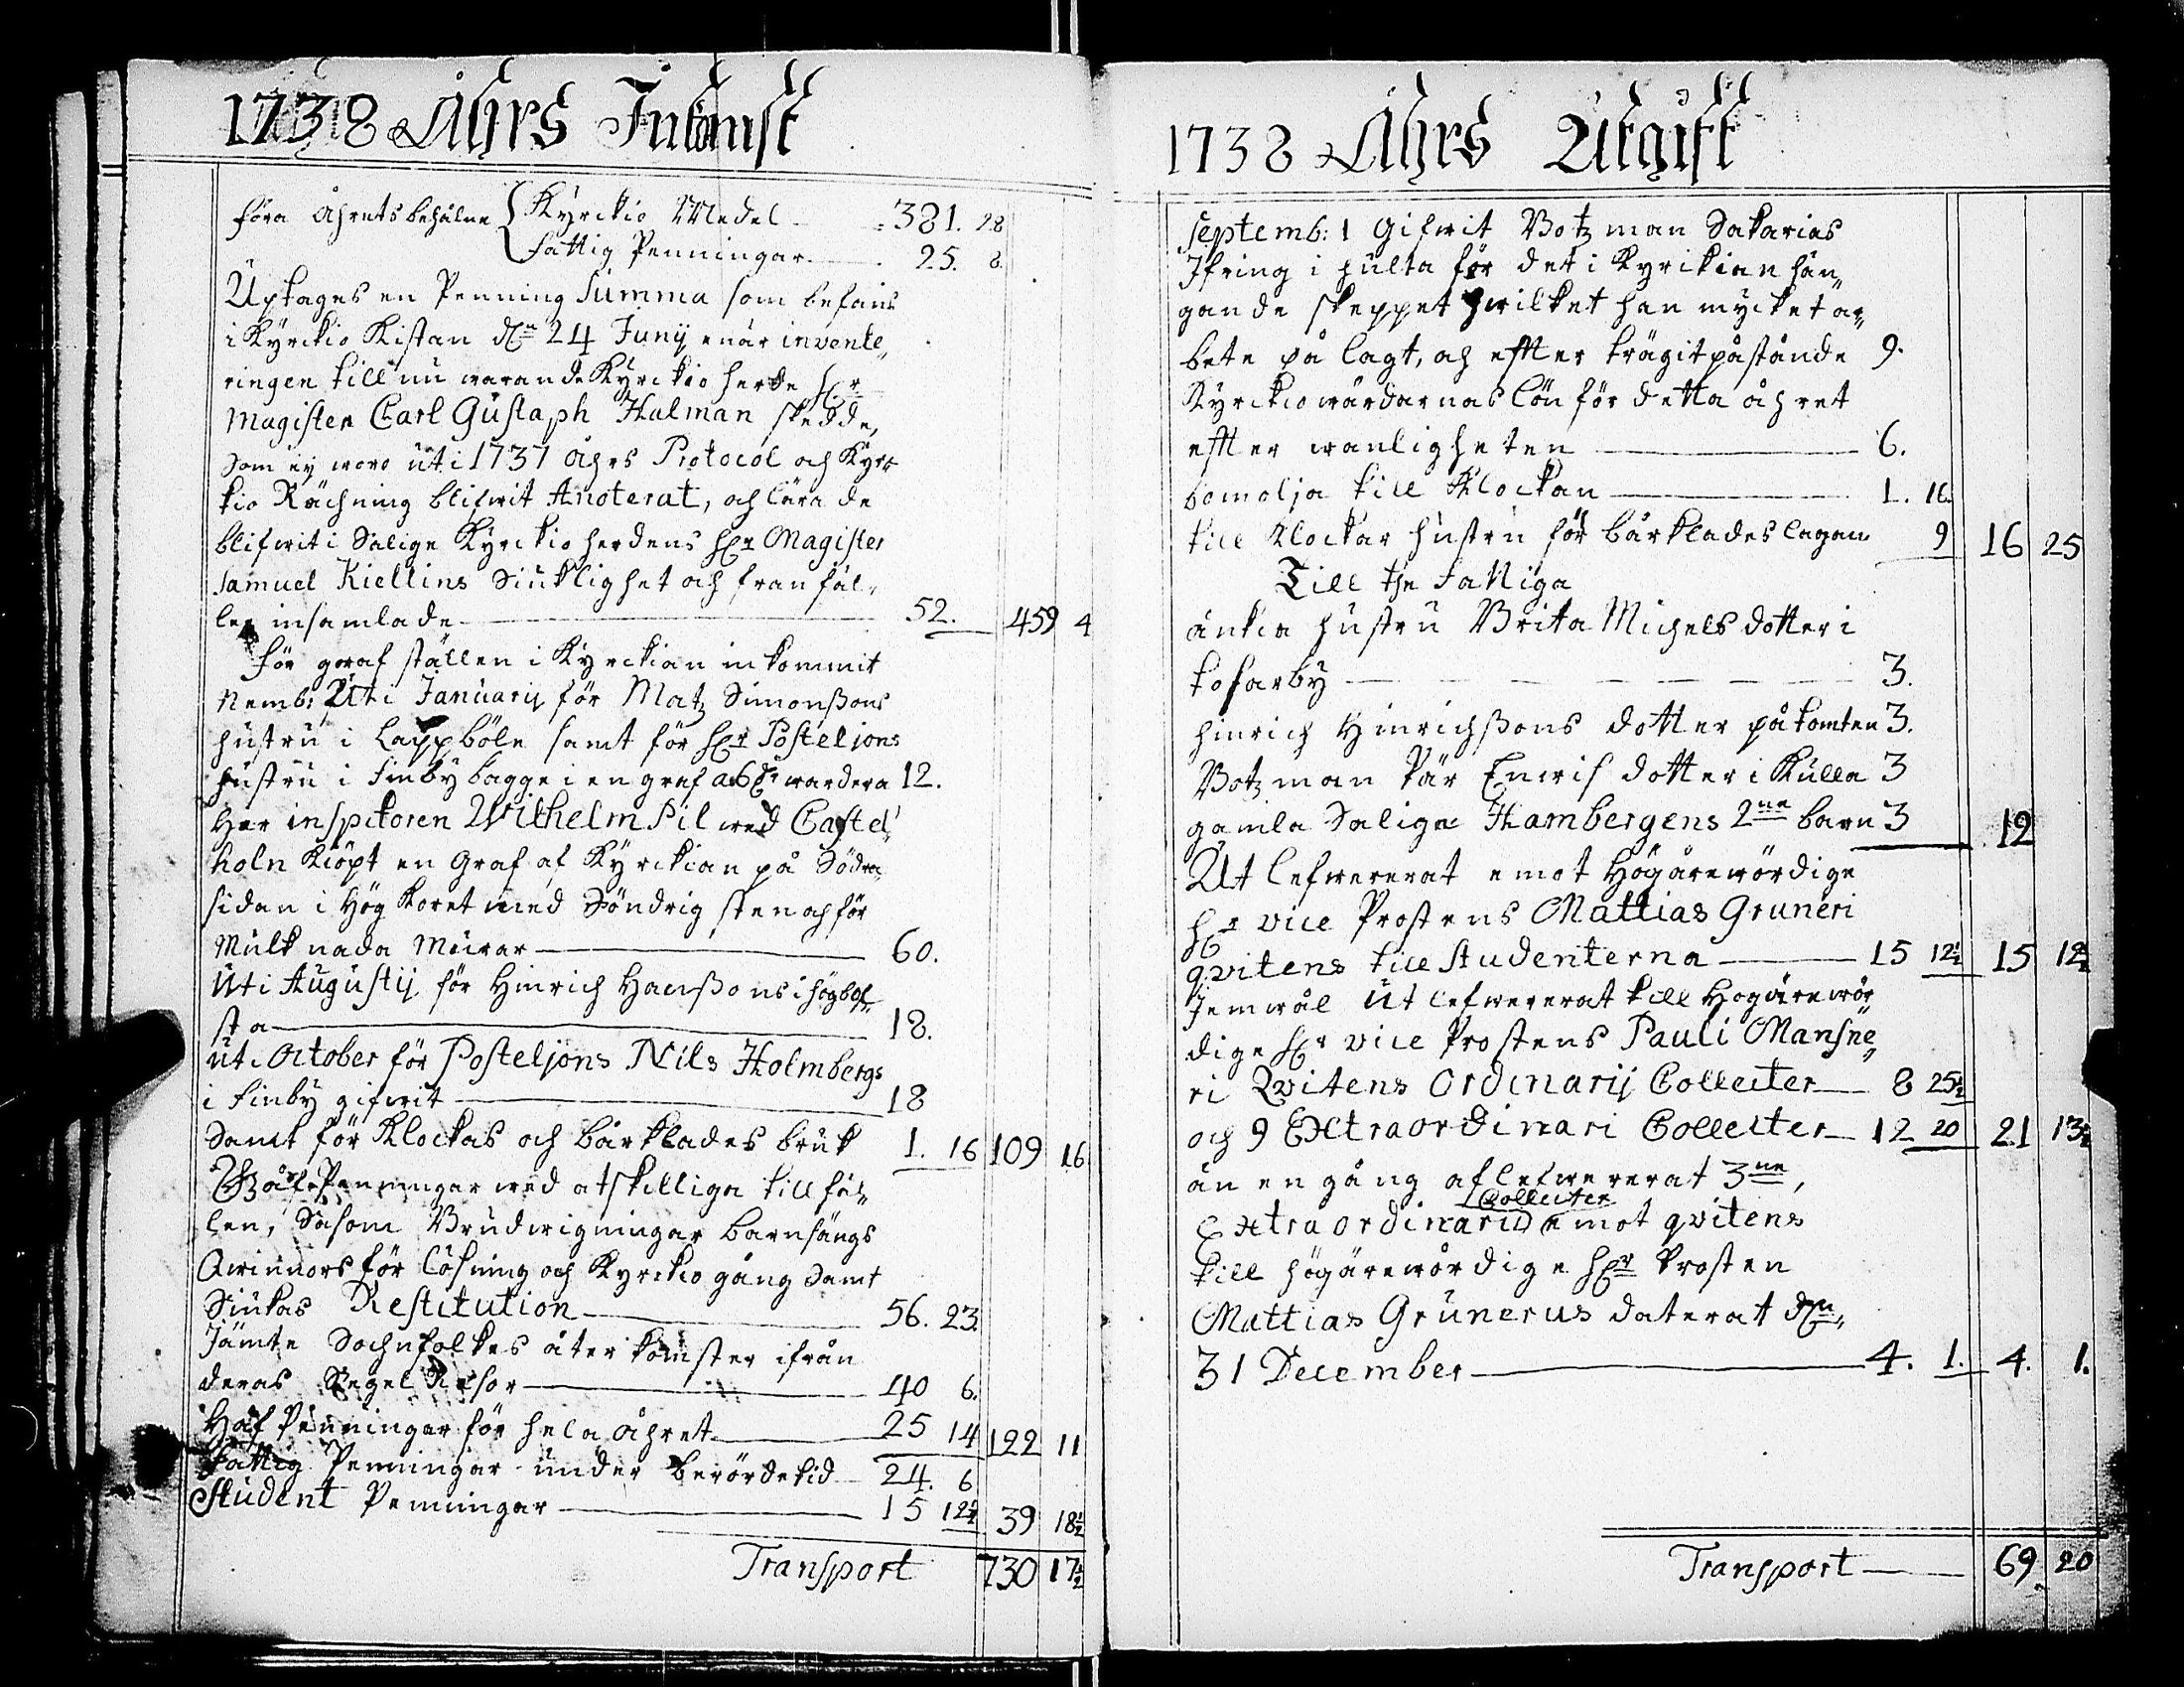 1738 Åhrs Inkomst
föra åhrets behålne { Kyrckio Medel 381. 28
Fattig Penningar 25. 8.
Uptages en Penning Summa som befans
i Kyrckio Kistan dn 24 Junij enär invente,,
ringen till nu warande Kyrckio herde Hr
Magister Carl Gustaph Halman skedde,
Som ey woro uti 1737 åhrs Protocol och Kyr
kio Rächning blifwit Anoterat, och lära de
blifwit i Salige Kyrckio herdens Hr Magister
Samuel Kiellins Siuklighet och fran fäl,,
le insamlade 52. 459 4
För graf ställen i Kyrckian inkommit
Nemb: Uti Januarij för Matz Simonßons
hustru i Lappböle samt för Hr Posteljons
hustru i Finby bagge i en graf a 6 dr wardera 12.
Her inspctoren Wilhelm Pil wed Castel,,
holn Kiöpt en Graf af Kyrckian på Södra
sidan i Hög Koret med Söndrig sten och för
Mulknada Murar 60.
Uti Augustij för Hinrich Hanßons i högbol
sta 18.
uti October för Posteljons Nils Holmbergs
i Finby gifwit 18
Samt för Klockas och bårklädes bruk 1. 16 109 16
Penningar wed atskillige till fäl,,
len, Såsom Brudwigningar barnsängs
Qwinnors för Lösning och Kyrckio gång Samt
Siukas Restitution 56. 23.
Jämte Sochnfolkes åter komster ifrån
deras Segel Resor 40 6.
Håf Penningar för hela åhret 25 14 122 11
Fattig Penningar under berörde tid 24. 6
Student Penningar 15 12½ 39 18½
Transport 730 17½
1738 Åhrs Utgift
Septemb: 1 Gifwit Botzman Sakarias
Ifring i hulta för det i Kyrckian hän,,
gande skeppet hwilket han mycket ar,,
bete på lagt, och effter trägit påstånde 9.
Kyrckiowärdarnas Lön för detta åhret
effter wanligheten 6.
bomolja till Klockan 1. 16.
till Klockar hustru för bårklädes lagan 9 16 25
Till the Fattiga
änkia hustru Brita Michels dotter i
tofarby 3.
Hinrich Hinrichßons dotter på tomten 3.
Botzman Pär Enris dotter i Kulla 3
gamla Salige Hambergens 2ne barn 3 12
Ut lefwererat emot Högärewördige
Hr vice Prostens Mattias Gruneri
qvitens till studenterna 15 12½ 15 12½
Jemwäl Utlefwererat till Högärewör
dige Hr vice Prostens Pauli Mansne,,
ri Qvitens Ordinarij Collecter 8 25½
och 9 Extraordinari Collecter 12 20 21 13½
än en gång aflefwererat 3ne,
Collecter
Extraordinarie emot qvitens
till högärewördige Hr Prosten
Mattias Grunerus daterat dn,
31 December 4. 1. 4. 1.
Transport 69 20